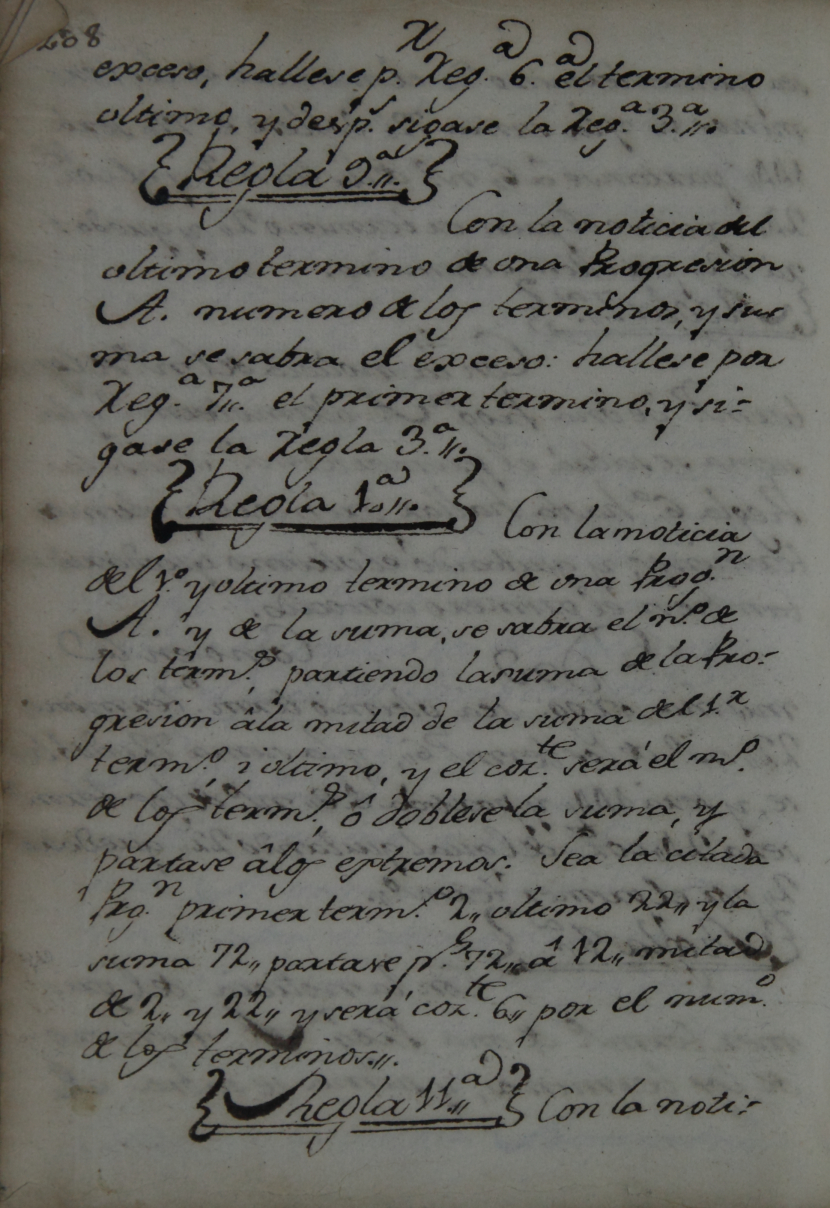 208
exceso, hallese p.r Reg.a 6.a el termino
ultimo, y desp.s sigase la Reg.a 3.a,,.
Regla 9.a,,.
Con la noticia del
ultimo termino de una Progresion
A. numero de los terminos, y su-
ma se sabra el exceso: hallese por
Reg.a 7.a,,. el primer termino, y si-
gase la Regla 3.a,,.
Regla 10.a,,.
Con la noticia
del 1.o y ultimo termino de una Prog.n
A. y de la suma, se sabra el n.o de
los term.s, partiendo la suma de la Pro-
gresion âla mitad de la suma del 1.r
term.o, i ultimo, y el coz.te será el n.o
de los term.s, ô doblese la suma, y
partase âlos extremos. Sea la citada
Prog.n primer term.o 2,, ultimo 22,, y la
suma 72,, partase p.s 72,, â 12,, mitad
de 2,, y 22,, y será coz.te 6,, por el num.o
de los terminos.,,.
Regla 11.a,,
Con la noti-